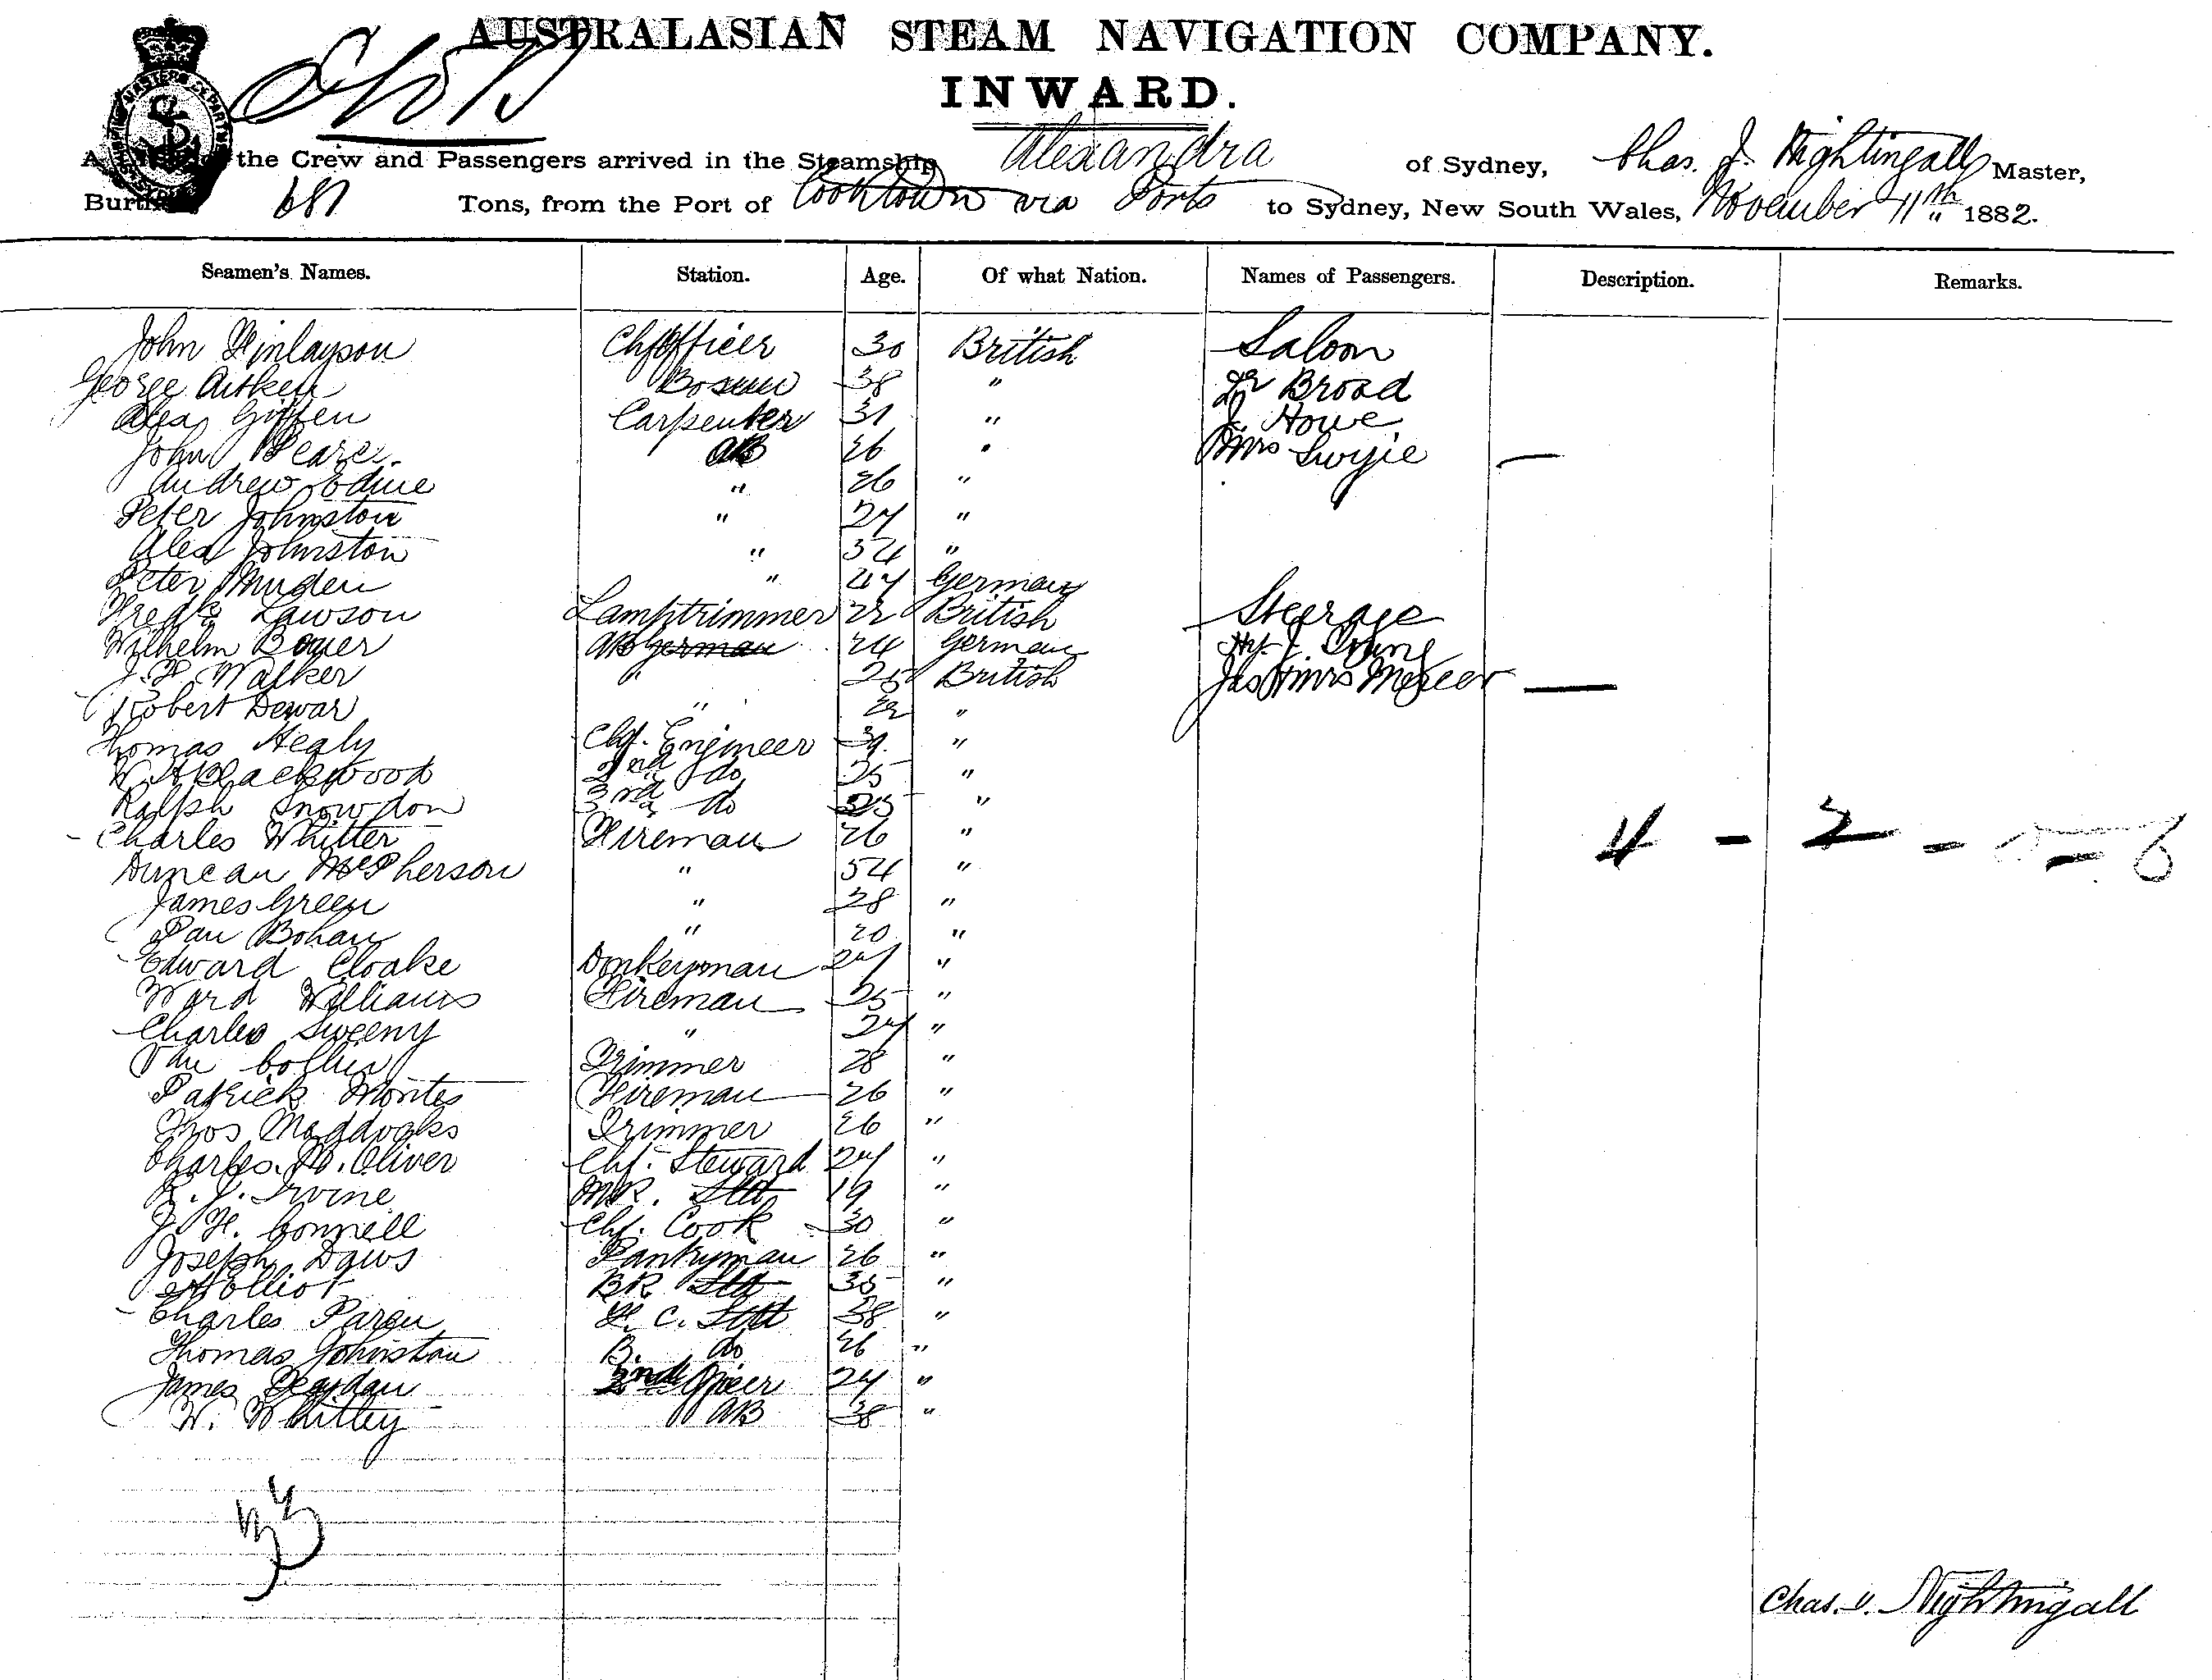 AUSTRALASIAN STEAM NAVIGATION COMPANY.
INWARD.
the Crew and Passengers arrived in the Steamship Alexandra of Sydney, Chas. J. Nightingall Master,
681 Tons, from the Port of Cooktown via Ports to Sydney, New South Wales, November 11th 1882.
Seamen's Names. Station. Age. Of what Nation. Names of Passengers. Description. Remarks.
John Finlayson Chf Officer 30 British Saloon
George Aitken Bosun 38 " Dr Broad
Alex Giffen Carpenter 31 " J. Howe
John Pearce AB 26 " Mrs
Andrew Edine " 26 "
Peter Johnston " 27 "
Alex Johnston " 34 "
Peter Muden " 47 German
Fredk Lawson Lamptrimmer 22 British Steerage
Wilhelm Bauer AB German 24 German Hy. J.
J. F. Walker " 25 British Jas & Mrs Mercer
Robert Dewar " 22 "
Thomas Healy Chf. Engineer 39 "
W. H. Blackwood 2nd do 25 "
Ralph Snowdon 3rd do 25 "
Charles Whitter Fireman 26 " 4 - 2 - - 6
Duncan McPherson " 54 "
James Green " 28 "
Dan Bohan " 20 "
Edward Cloake Donkeyman 27 "
Ward Williams Fireman 25 "
Charles Sweeny " 27 "
Dan Collins Trimmer 28 "
Patrick Montes Fireman 26 "
Thos Maddocks Trimmer 26 "
Charles. B. Oliver Chf. Steward 27 "
R. J. Irvine MR. Std 19 "
J. H. Connell Chf. Cook 30 "
Joseph Daws Pantryman 26 "
A Elliot BR Std 35 "
Charles Paren F. C. Std 38 "
Thomas Johnston B. do 26 "
James 2nd Officer 24 "
W. Whitley AB 38 "
33
Chas. J. Nightingall